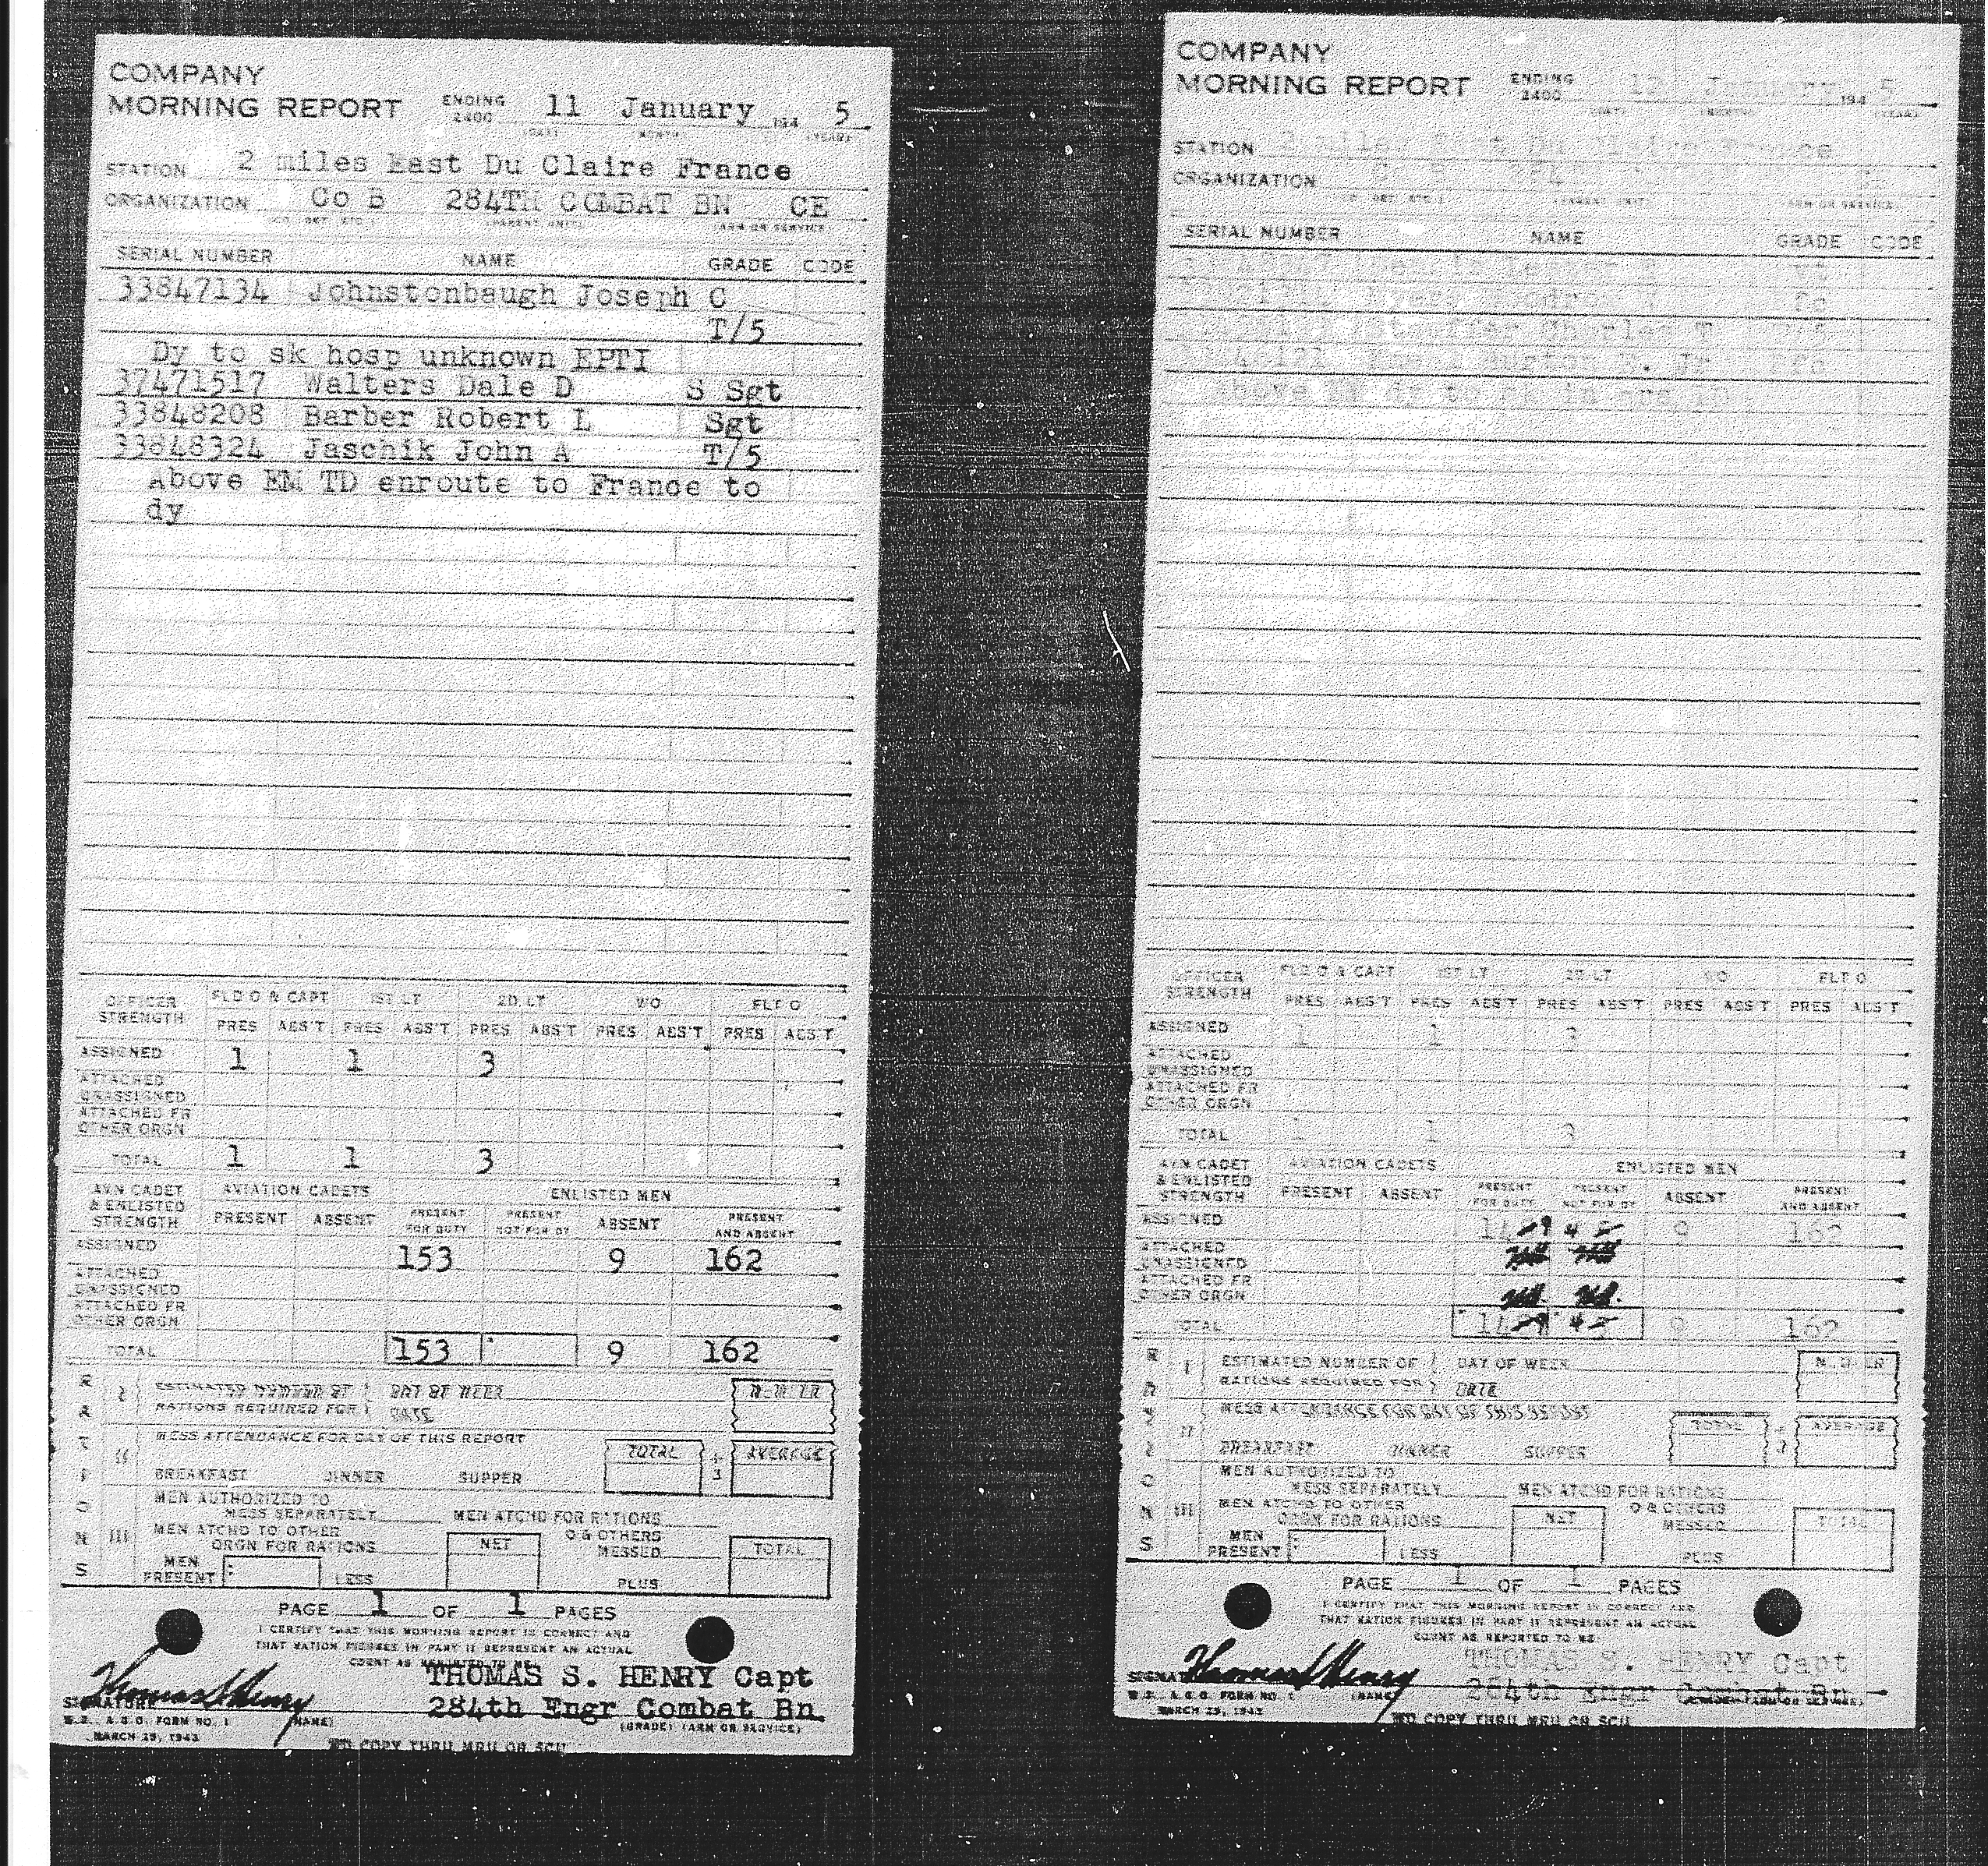 COMPANY
MORNING REPORT ENDING 2400 11 January 194 5
(DAY) MONTH (YEAR)
STATION 2 miles East Du Claire France
ORGANIZATION Co B 284TH COMBAT BN CE
(PARENT UNIT) (ARM OR SERVICE)
SERIAL NUMBER NAME GRADE CODE
33847134 Johnstonbaugh Joseph C
T/5
Dy to sk hosp unknown EPTI
37471517 Walters Dale D S Sgt
33848208 Barber Robert L Sgt
33848324 Jaschik John A T/5
Above EM TD enroute to France to
dy
OFFICER STRENGTH FLD O & CAPT 1ST LT 2D LT WO FLT O
PRES ABS'T PRES ABS'T PRES ABS'T PRES ABS'T PRES ABS'T
ASSIGNED 1 1 3
ATTACHED
UNASSIGNED
ATTACHED FR
OTHER ORGN
TOTAL 1 1 3
AVN CADET & ENLISTED STRENGTH AVIATION CADETS ENLISTED MEN
PRESENT ABSENT PRESENT FOR DUTY PRESENT NOT FOR DY ABSENT PRESENT AND ABSENT
ASSIGNED 153 9 162
ATTACHED
UNASSIGNED
ATTACHED FR
OTHER ORGN
TOTAL 153 9 162
RATIONS
I ESTIMATED NUMBER OF RATIONS REQUIRED FOR DAY OF WEEK DATE NUMBER
II MESS ATTENDANCE FOR DAY OF THIS REPORT TOTAL ÷ 3 AVERAGE
BREAKFAST DINNER SUPPER
III MEN AUTHORIZED TO
MESS SEPARATELY MEN ATCHD FOR RATIONS
MEN ATCHD TO OTHER
ORGN FOR RATIONS NET O & OTHERS MESSED TOTAL
MEN PRESENT LESS PLUS
PAGE 1 OF 1 PAGES
I CERTIFY THAT THIS MORNING REPORT IS CORRECT AND
THAT RATION FIGURES IN PART II REPRESENT AN ACTUAL
COUNT AS REPORTED TO ME
THOMAS S. HENRY Capt
SIGNATURE Thomas S Henry 284th Engr Combat Bn
W.D., A.G.O. FORM NO. 1 (NAME) (GRADE) (ARM OR SERVICE)
MARCH 25, 1943 WD COPY THRU MRU OR SCU
COMPANY
MORNING REPORT ENDING 2400 12 January 194 5
STATION
ORGANIZATION
SERIAL NUMBER NAME GRADE CODE
Charles T
Burton E. Jr Pfc
OFFICER STRENGTH FLD O & CAPT 1ST LT 2D LT WO FLT O
PRES ABS'T PRES ABS'T PRES ABS'T PRES ABS'T PRES ABS'T
ASSIGNED 1 1 3
ATTACHED
UNASSIGNED
ATTACHED FR
OTHER ORGN
TOTAL 1 1 3
AVN CADET & ENLISTED STRENGTH AVIATION CADETS ENLISTED MEN
PRESENT ABSENT PRESENT FOR DUTY PRESENT NOT FOR DY ABSENT PRESENT AND ABSENT
ASSIGNED 9 162
ATTACHED
UNASSIGNED
ATTACHED FR
OTHER ORGN
TOTAL 9 162
RATIONS
I ESTIMATED NUMBER OF RATIONS REQUIRED FOR DAY OF WEEK DATE NUMBER
II MESS ATTENDANCE FOR DAY OF THIS REPORT TOTAL ÷ 3 AVERAGE
BREAKFAST DINNER SUPPER
III MEN AUTHORIZED TO
MESS SEPARATELY MEN ATCHD FOR RATIONS
MEN ATCHD TO OTHER
ORGN FOR RATIONS NET O & OTHERS MESSED TOTAL
MEN PRESENT LESS PLUS
PAGE 1 OF 1 PAGES
I CERTIFY THAT THIS MORNING REPORT IS CORRECT AND
THAT RATION FIGURES IN PART II REPRESENT AN ACTUAL
COUNT AS REPORTED TO ME
THOMAS S. HENRY Capt
SIGNATURE Thomas S Henry 284th Engr Combat Bn
W.D., A.G.O. FORM NO. 1 (NAME) (GRADE) (ARM OR SERVICE)
MARCH 25, 1943 WD COPY THRU MRU OR SCU